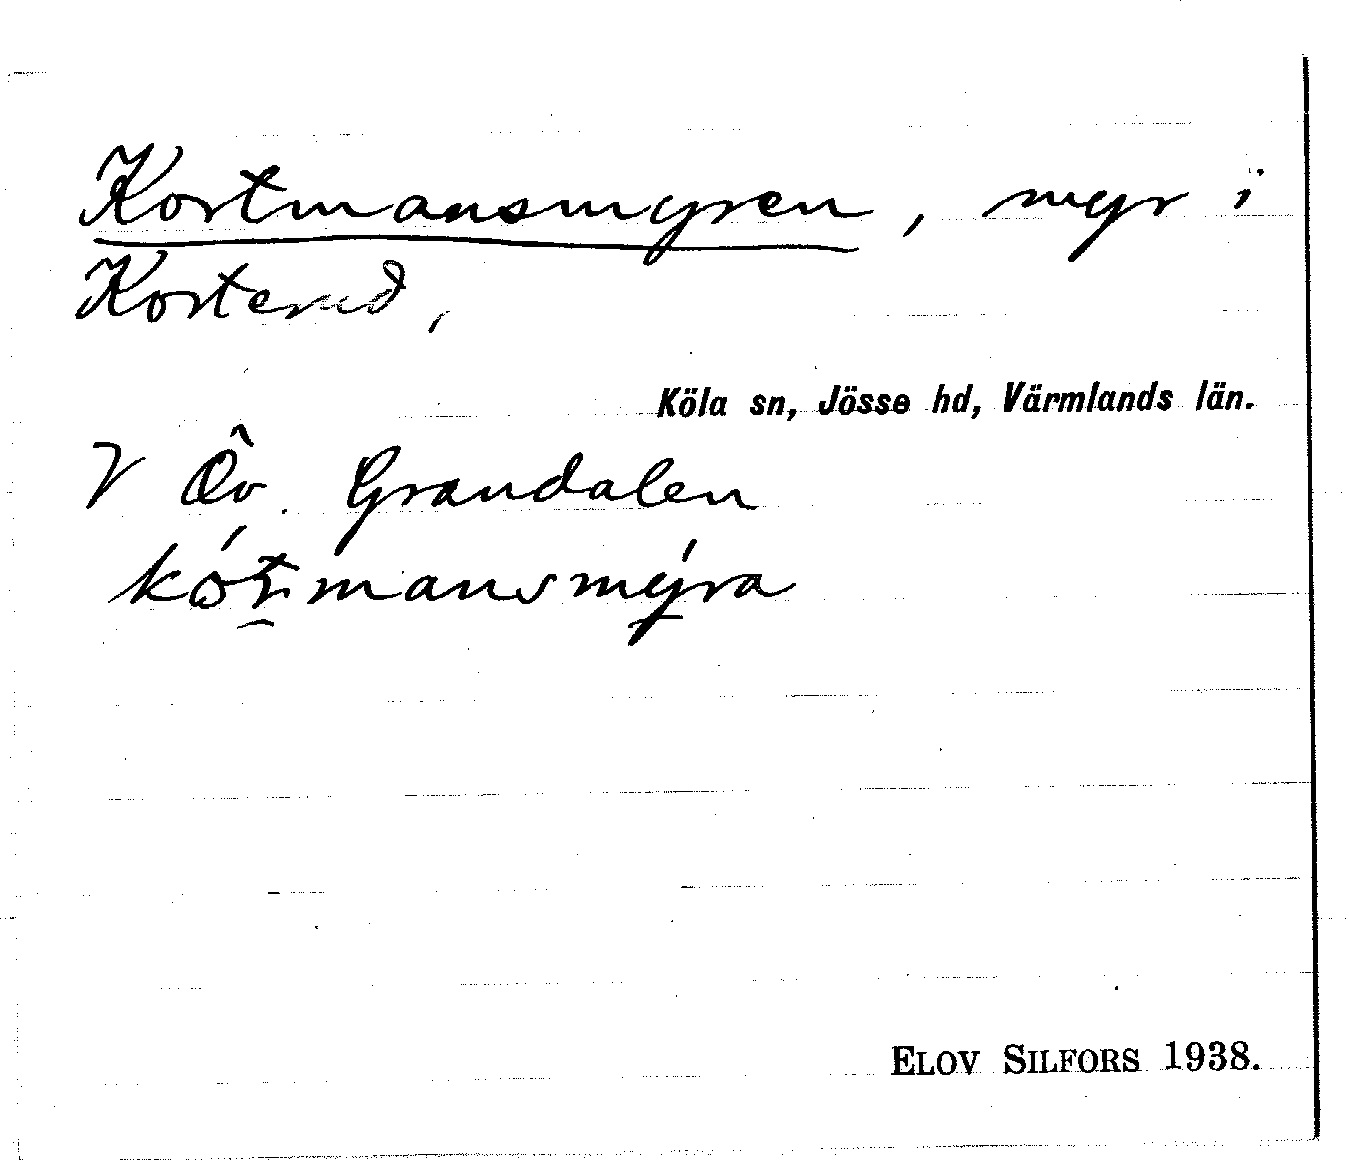 Kortmansmyren, myr i
Korterud,
Köla sn, Jösse hd, Värmlands län.
V Öv. Grandalen
kótmansmýra
ELOV SILFORS 1938.